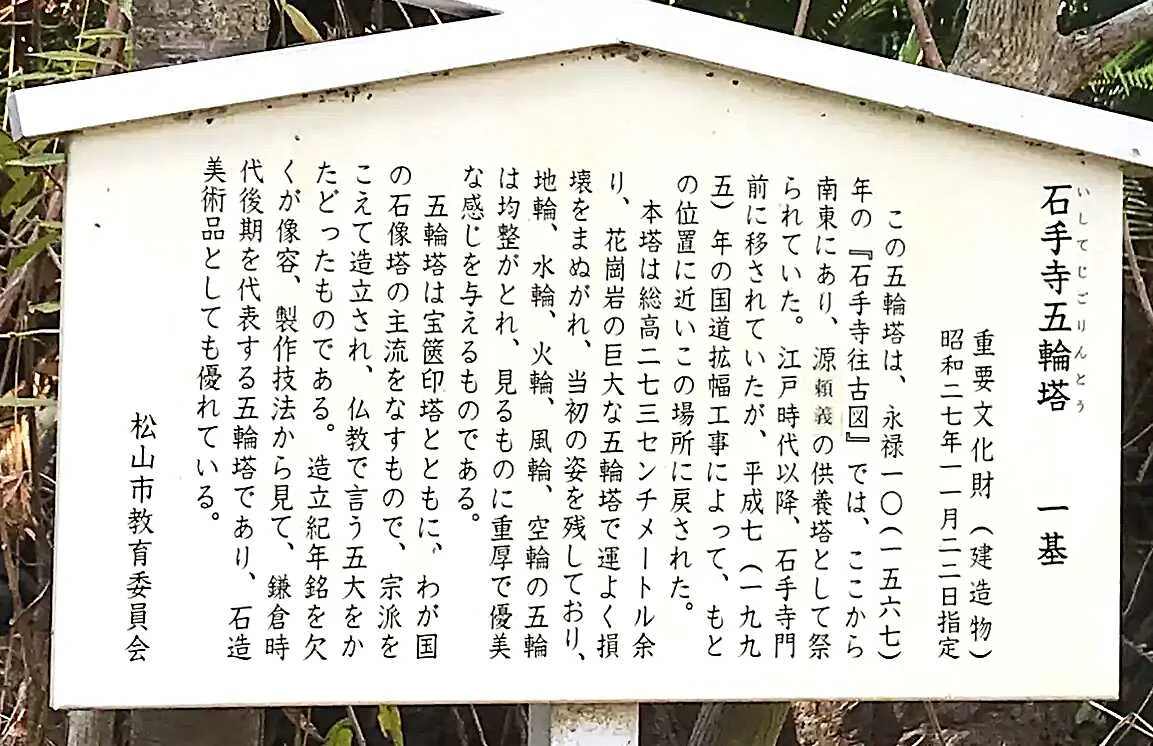 いしてじごりんとう
石手寺五輪塔　一基
重要文化財（建造物）
昭和二七年一一月二二日指定
この五輪塔は、永禄一〇（一五六七）
年の『石手寺往古図』では、ここから
南東にあり、源頼義の供養塔として祭
られていた。江戸時代以降、石手寺門
前に移されていたが、平成七（一九九
五）年の国道拡幅工事によって、もと
の位置に近いこの場所に戻された。
本塔は総高二七三センチメートル余
り、花崗岩の巨大な五輪塔で運よく損
壊をまぬがれ、当初の姿を残しており、
地輪、水輪、火輪、風輪、空輪の五輪
は均整がとれ、見るものに重厚で優美
な感じを与えるものである。
五輪塔は宝篋印塔とともに、わが国
の石像塔の主流をなすもので、宗派を
こえて造立され、仏教で言う五大をか
たどったものである。造立紀年銘を欠
くが像容、製作技法から見て、鎌倉時
代後期を代表する五輪塔であり、石造
美術品としても優れている。
松山市教育委員会